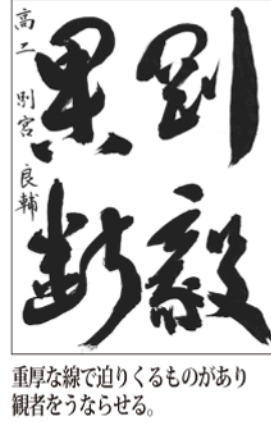 剛毅
果断
高二 別宮良輔
重厚な線で迫りくるものがあり
観者をうならせる。